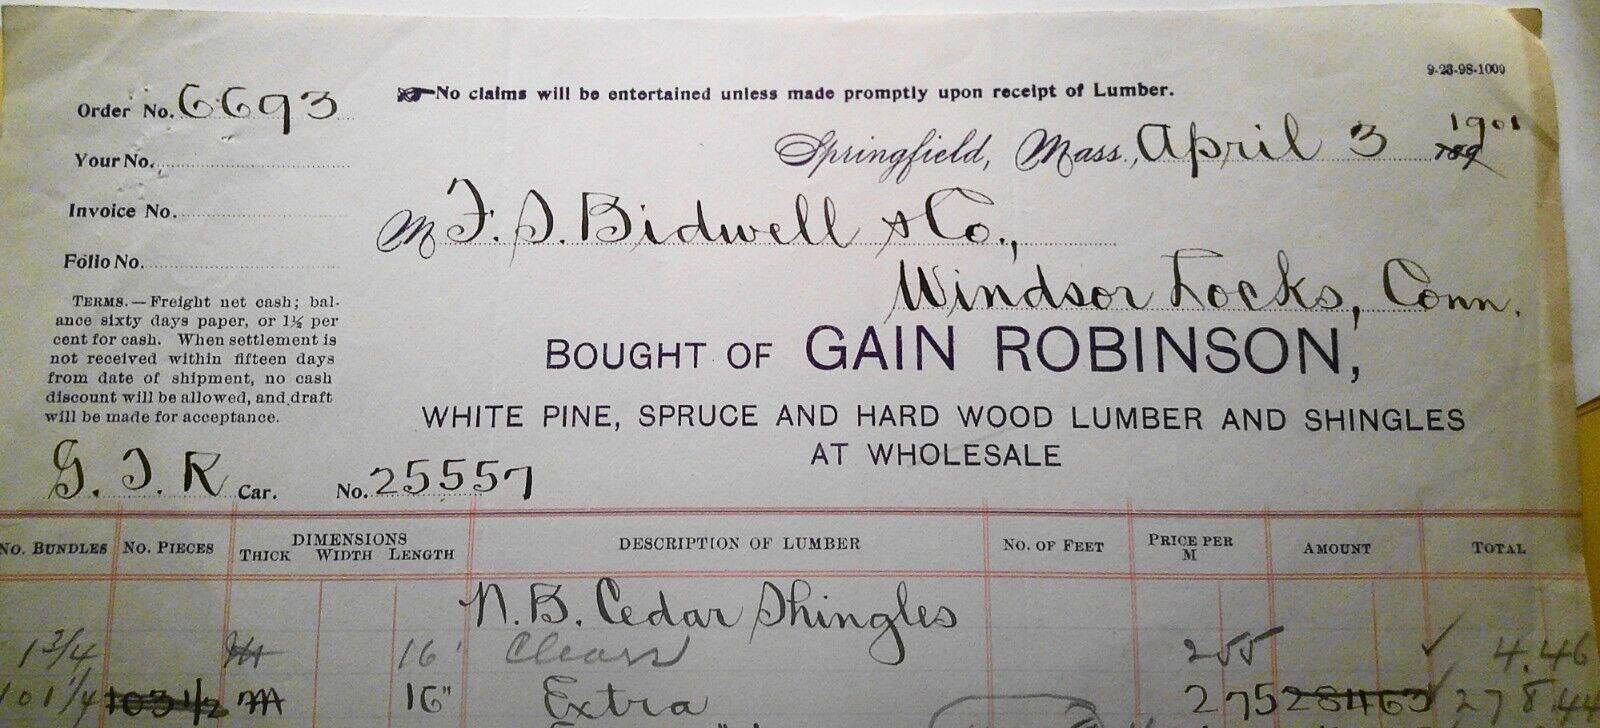 9-23-98-1000
Order No. 6693
No claims will be entertained unless made promptly upon receipt of Lumber.
Your No.
Springfield, Mass., April 3 1901
189
Invoice No.
M F. S. Bidwell & Co.,
Folio No.
Windsor Locks, Conn.
TERMS.—Freight net cash; bal-
ance sixty days paper, or 1½ per
cent for cash. When settlement is
not received within fifteen days
from date of shipment, no cash
discount will be allowed, and draft
will be made for acceptance.
BOUGHT OF GAIN ROBINSON,
WHITE PINE, SPRUCE AND HARD WOOD LUMBER AND SHINGLES
AT WHOLESALE
G. T. R Car. No. 25557
NO. BUNDLES NO. PIECES DIMENSIONS THICK WIDTH LENGTH DESCRIPTION OF LUMBER NO. OF FEET PRICE PER M AMOUNT TOTAL
N. B. Cedar Shingles
1 3/4 M 16" Clears 255 ✓ 4.46
101 1/4 103 1/2 M 16" Extra 275 28463 ✓ 278.44